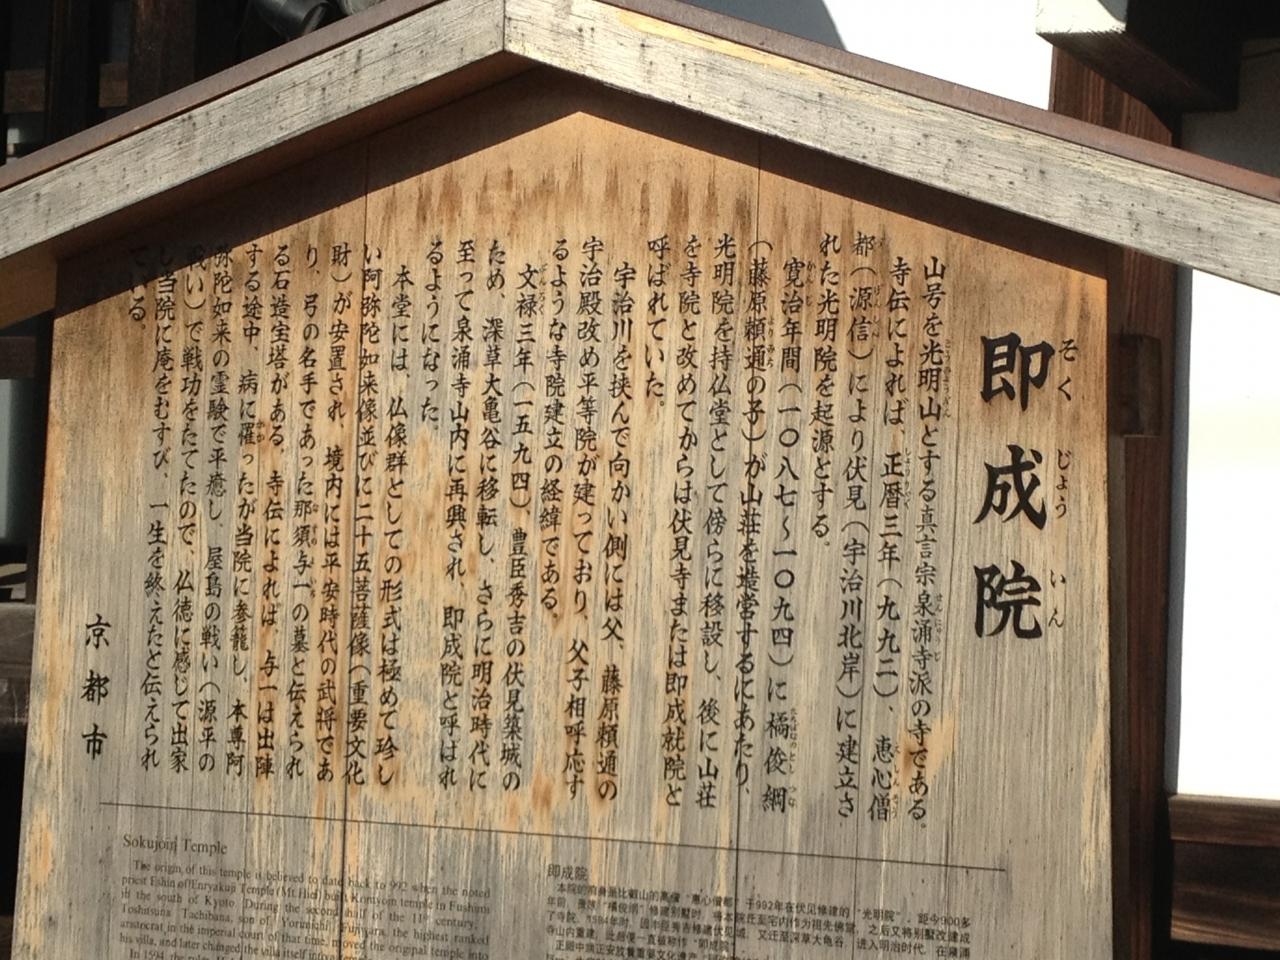 即成院
そくじょういん
山号を光明山とする真言宗泉涌寺派の寺である。
寺伝によれば、正暦三年(九九二)、恵心僧
都(源信)により伏見(宇治川北岸)に建立さ
れた光明院を起源とする。
寛治年間(一〇八七~一〇九四)に橘俊綱
(藤原頼通の子)が山荘を造営するにあたり、
光明院を持仏堂として傍らに移設し、後に山荘
を寺院と改めてからは伏見寺または即成就院と
呼ばれていた。
宇治川を挟んで向かい側には父、藤原頼通の
宇治殿改め平等院が建っており、父子相呼応す
るような寺院建立の経緯である。
文禄三年(一五九四)、豊臣秀吉の伏見築城の
ため、深草大亀谷に移転し、さらに明治時代に
至って泉涌寺山内に再興され、即成院と呼ばれ
るようになった。
本堂には、仏像群としての形式は極めて珍し
い阿弥陀如来像並びに二十五菩薩像(重要文化
財)が安置され、境内には平安時代の武将であ
り、弓の名手であった那須与一の墓と伝えられ
る石造宝塔がある。寺伝によれば、与一は出陣
する途中、病に罹ったが当院に参籠し、本尊阿
弥陀如来の霊験で平癒し、屋島の戦い(源平の
戦い)で戦功をたてたので、仏徳に感じて出家
し当院に庵をむすび、一生を終えたと伝えられ
ている。
京都市
Sokujoin Temple
The origin of this temple is believed to date back to 992 when the noted
priest Eshin of Enryakuji Temple (Mt. Hiei) built Komyoin temple in Fushimi
in the south of Kyoto. During the second half of the 11th century,
Toshitsuna Tachibana, son of Yorimichi Fujiwara, the highest ranked
aristocrat in the imperial court of that time, moved the original temple into
his villa, and later changed the villa itself into
In 1594, the ruler,
即成院
本院的前身是比叡山的高僧"惠心僧都"于992年在伏见修建的"光明院"。距今900多
年前,贵族"橘俊纲"修建别墅时,将本院迁至宅内作为祖先佛堂,之后又将别墅改建成
了寺院。1594年时,因丰臣秀吉修建伏见城,又迁至深草大龟谷,进入明治时代,在泉涌
寺山内重建,此后便一直被称作"即成院"